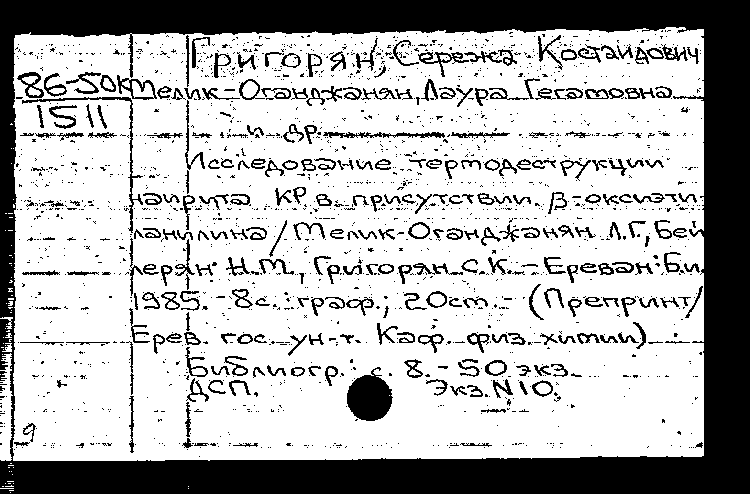 Григорян, Сережа Костандович
86-50к Мелик-Оганджанян, Лаура Гегамовна
1511
и др.
Исследование термодеструкции
наирита КР в присутствии β-оксиэти-
ланилина / Мелик-Оганджанян Л.Г., Бей
лерян Н.М., Григорян С.К. - Ереван: Б.и.
1985. - 8с.: граф.; 20см. - (Препринт/
Ерев. гос. ун-т. Каф. физ. химии)
Библиогр.: с. 8. - 50 экз.
ДСП. Экз. N10.
9